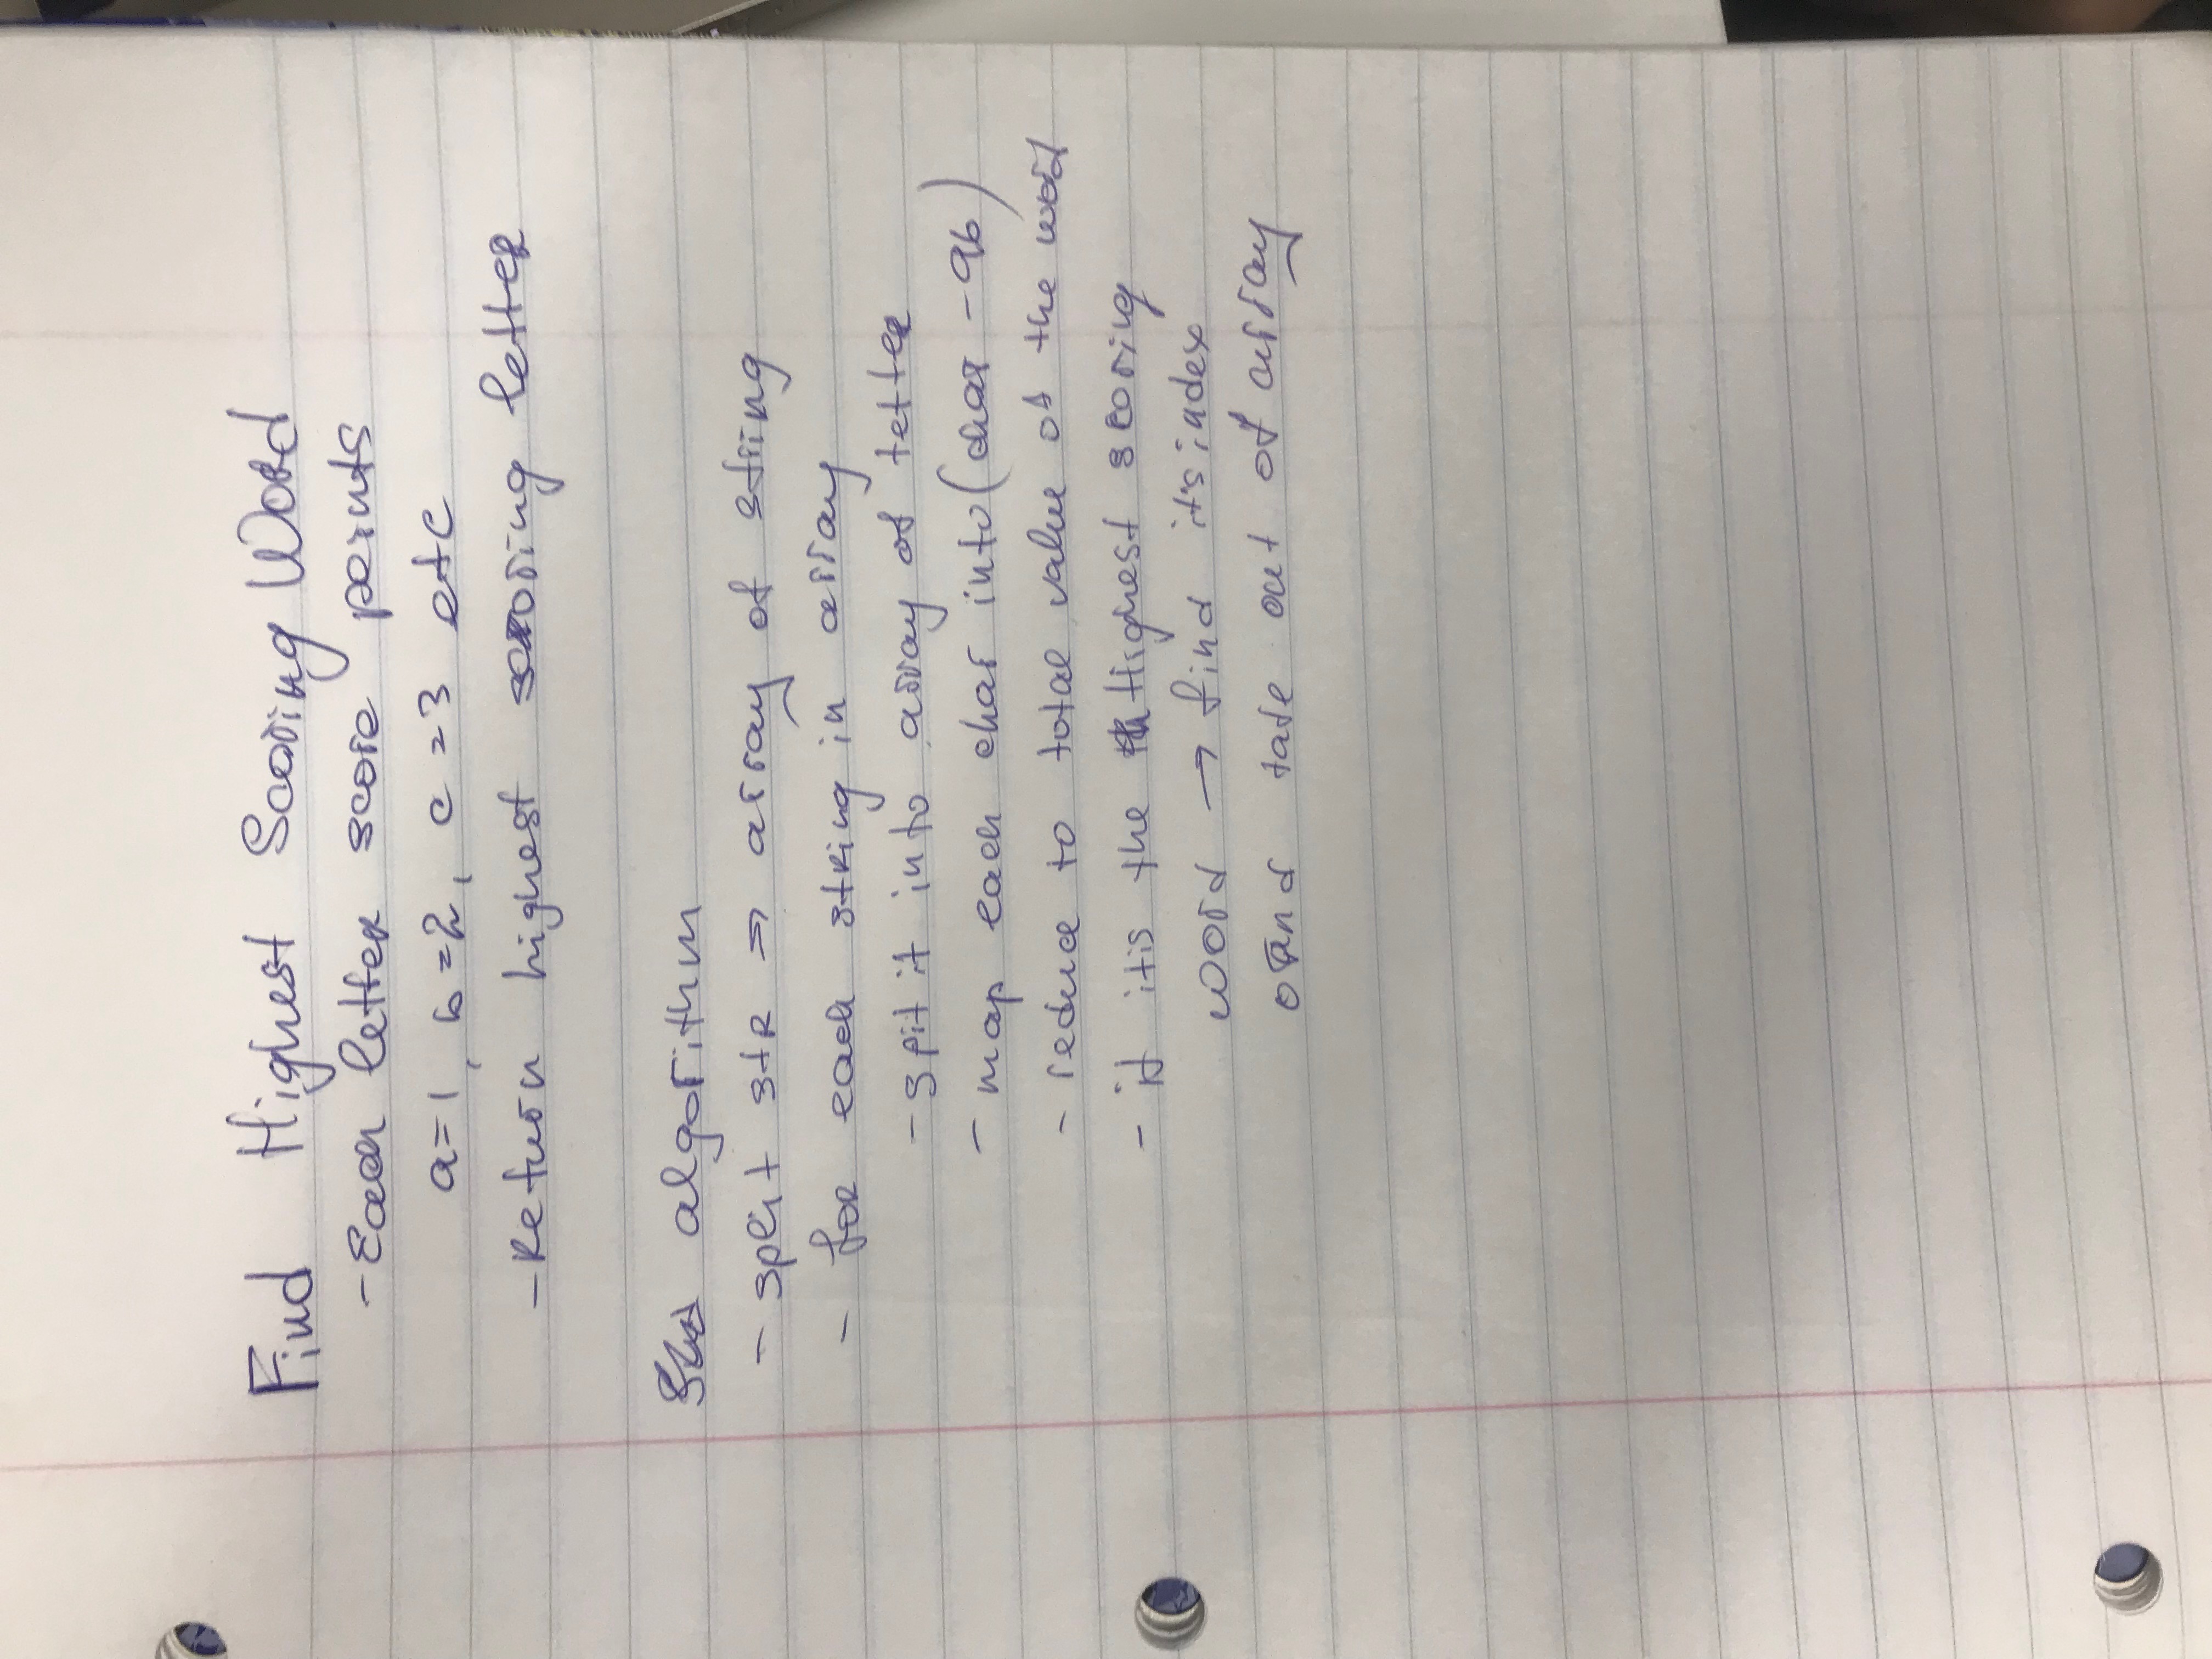 Find Highest Scoring Word
- Each letter score points
a=1, b=2, c=3 etc
- Return highest scoring letter
algorithm
- split str => array of string
- for each string in array
- spit it into array of letter
- map each char into (char - 96)
- reduce to total value of the word
- if it is the Highest scoring
word → find it's index
and take out of array